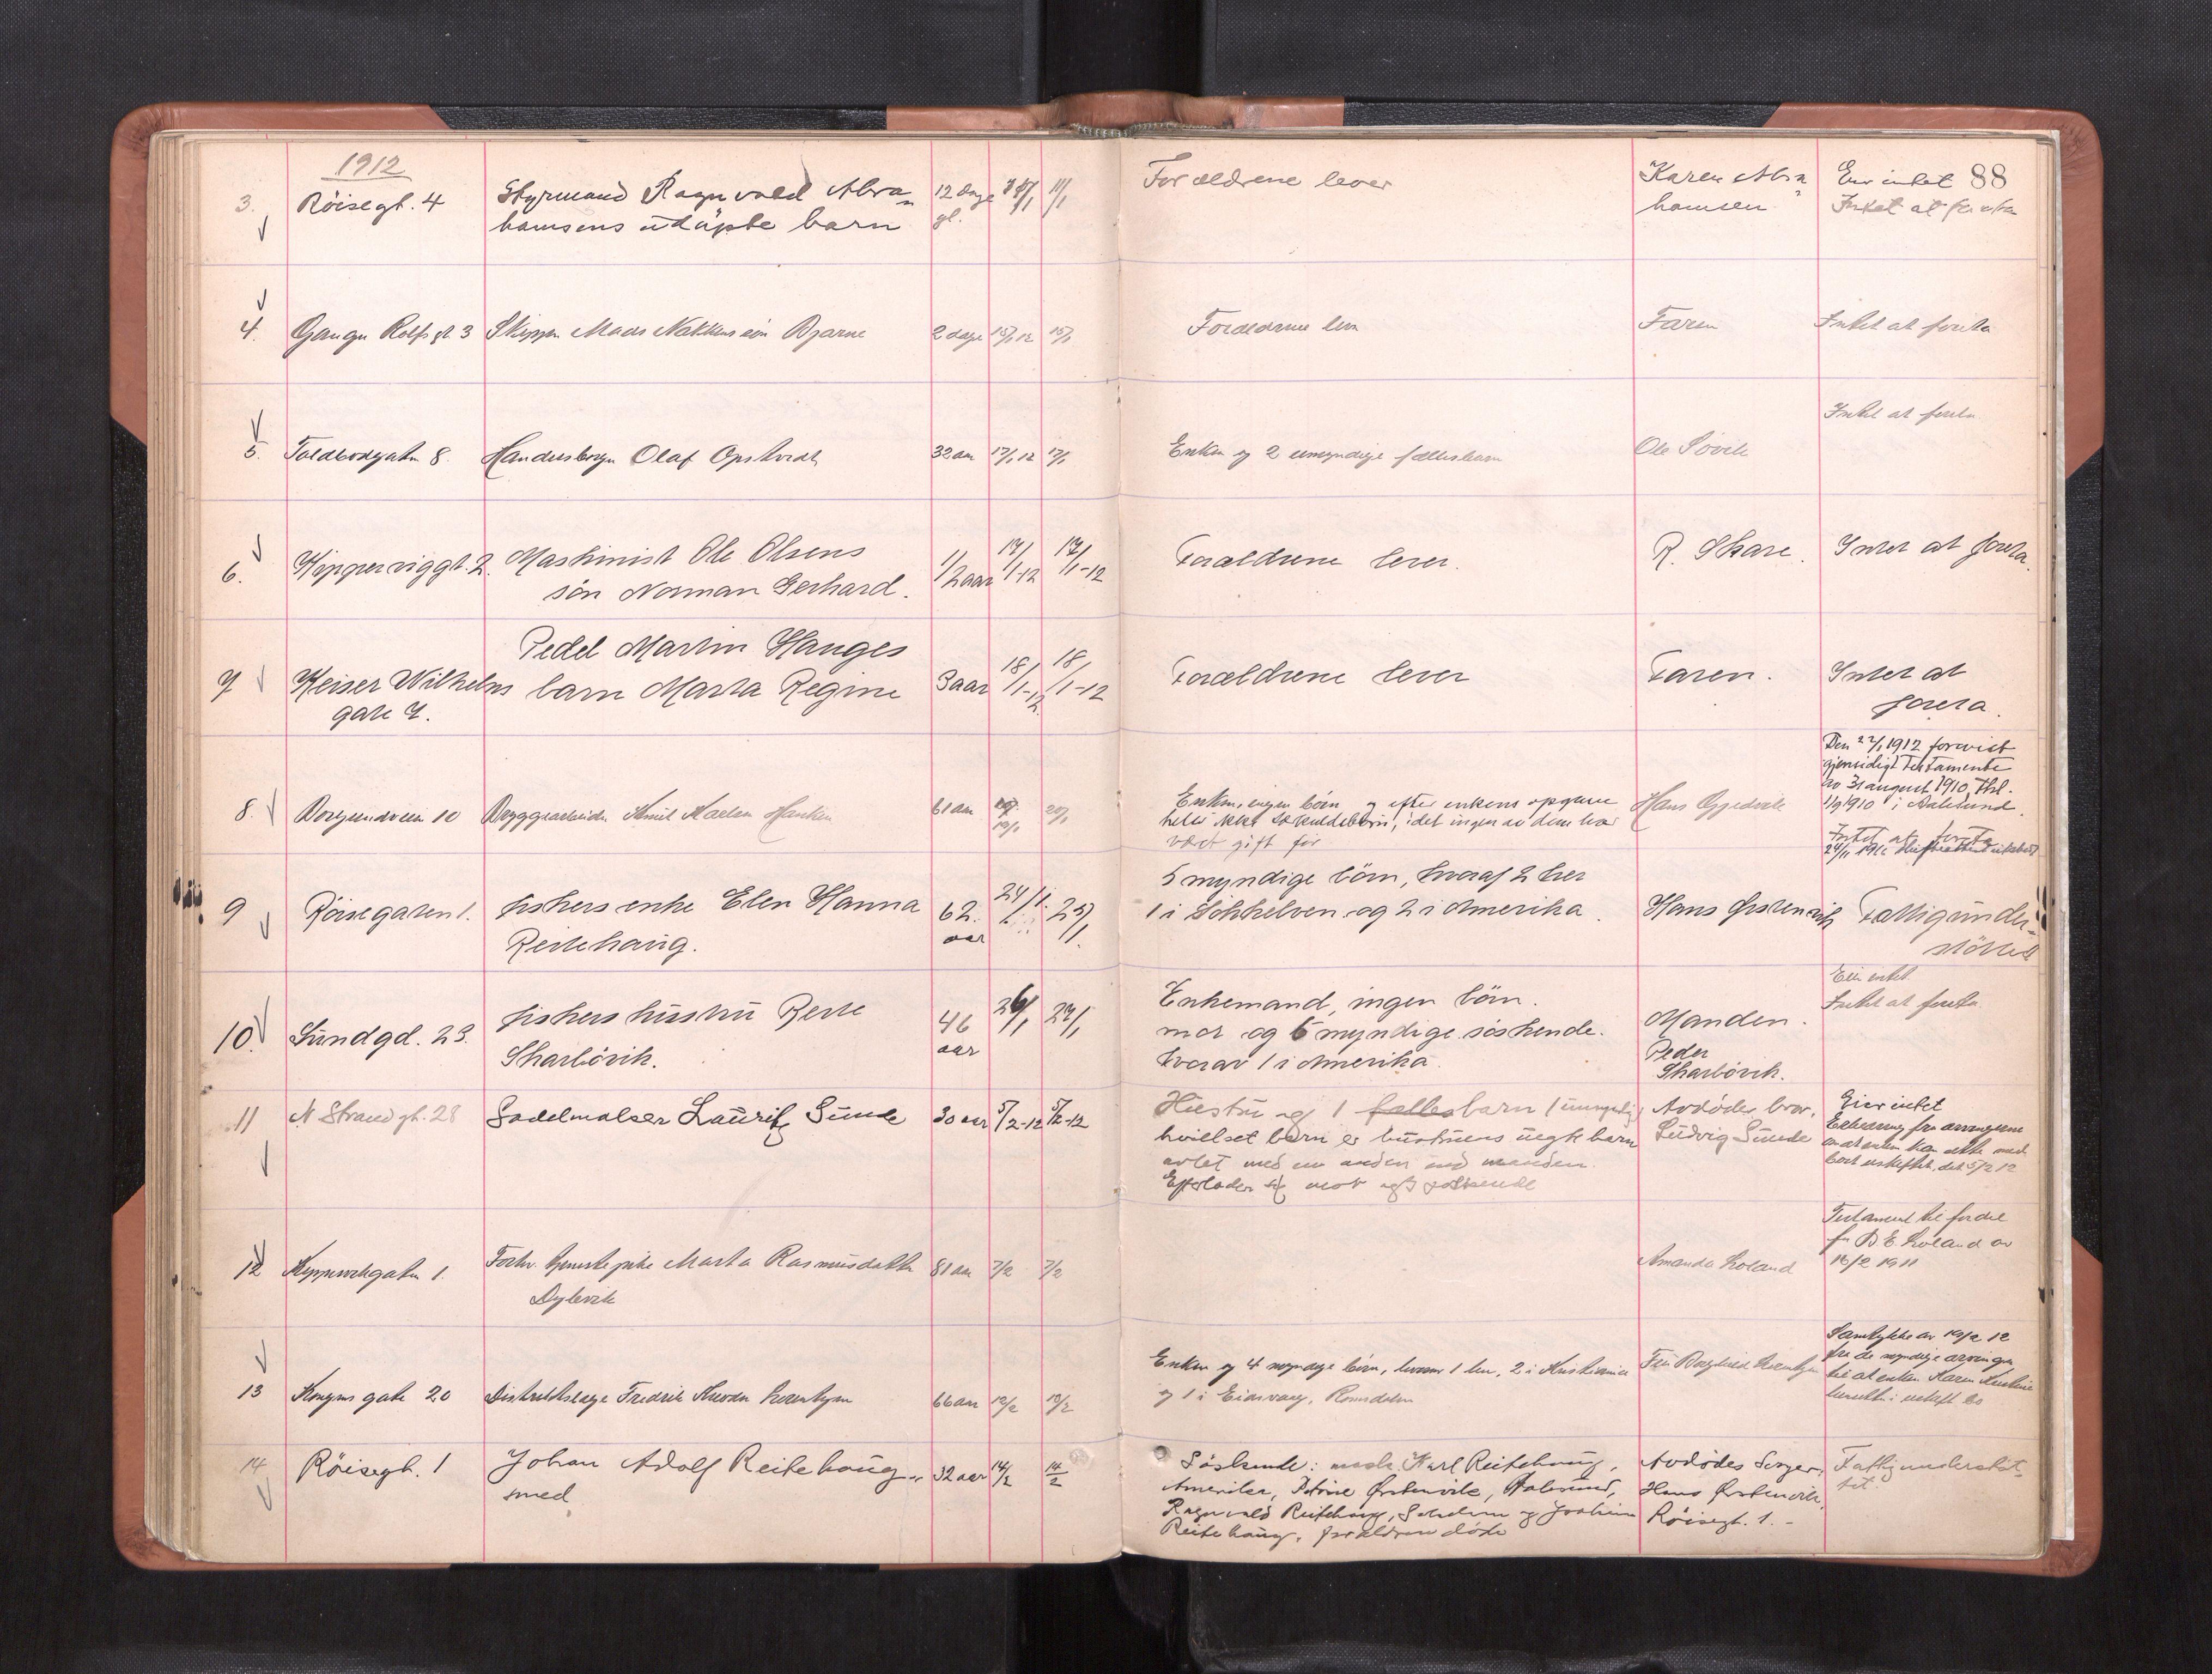 1912
88
3. Röisegt. 4 Styrmand Ragnvald Abra= 12 dage 11/1 Forældrene lever Karen Abra= Eier intet
hamsens udöpte barn gl. hamsen Intet at foreta
4. Gange Rolfs gt. 3 Skipper Mads Nakkens sön Bjarne 2 dage 15/1 12 15/1 Forældrene lever Faren Intet at foreta
Intet at foreta
5. Toldbodgaten 8. Olaf Opstvedt 32 aar 17/1 12 17/1 Enken og 2 umyndige fællesbarn Ole Søvik
6. Kipperviggt. 2. Maskinist Ole Olsens 1/2 aar 17/1-12 17/1-12 Forældrene lever. R. Skare. Intet at foreta.
sön Norman Gerhard.
Pedel Martin Hauges
7 Keiser Wilhelms barn Marta Regine 3 aar 18/1-12 18/1-12 Forældrene lever Faren. Intet at
gate 7. foreta.
Den 22/1 1912 forevist
gjensidigt testamente
av 31 august 1910, thl.
1/9 1910 i Aalesund.
8. Borgundveien 10 Bryggearbeider 61 aar 19/1 20/1 Enken, ingen börn og efter enkens opgave Hans
heller ikke særkuldsbörn, idet ingen av dem har
været gift för
Intet at foreta
5 myndige börn, hvoraf 2 her
9 Röisegaten 1. fiskers enke Elen Hanna 62. 24/1 25/1 1 i Sökkelven og 2 i Amerika. Hans Ørstenvik Fattigunder=
Reitehaug. aar støttet
Eier intet
Intet at foreta
10. Sundgd. 23. fiskers hustru Berte 46 26/1 27/1 Enkemand, ingen börn. Manden.
Skarbövik. aar mor og 6 myndige söskende. Peder
hvorav 1 i Amerika. Skarbövik.
11 N. Strandgt. 28 Sadelmaker Lauritz Sunde 30 aar 5/2-12 5/2-12 Hustru og 1 fælles barn (umyndig) Avdødes bror, Eier intet
hvilket barn er hustruens uegte barn Ludvig Sunde Erklæring fra arvingerne
avlet med en anden end manden. om at enken kan sitte med
Efterlader sig mor og söskende boet uskiftet, dat 5/2 12
12 Kippervikgaten 1. Forhv. tjenestepike Marta Rasmusdatter 81 aar 7/2 7/2 Amanda Roland Testament til fordel
for B E Roland av
16/2 1911
13 Kongens gate 20 Distriktslæge Fredrik 66 aar 12/2 12/2 Enken og 4 myndige börn, hvorav 1 her, 2 i Kristiania Fru Borghild Samtykke av 19/2 12
og 1 i Eidsvaag, Romsdalen fra de myndige arvinger
til at enken Karen Kristine
14 Röisegt. 1 Johan Adolf Reitehaug 32 aar 14/2 14/2 Söskende: Karl Reitehaug, Avdødes Svoger, Fattigunderstöt-
smed Amerika, Petrine Ørstenvik, Aalesund, Hans Ørstenvik, tet
Ragnvald Reitehaug, og Joakim Röisegt. 1. -
Reitehaug. forældrene döde